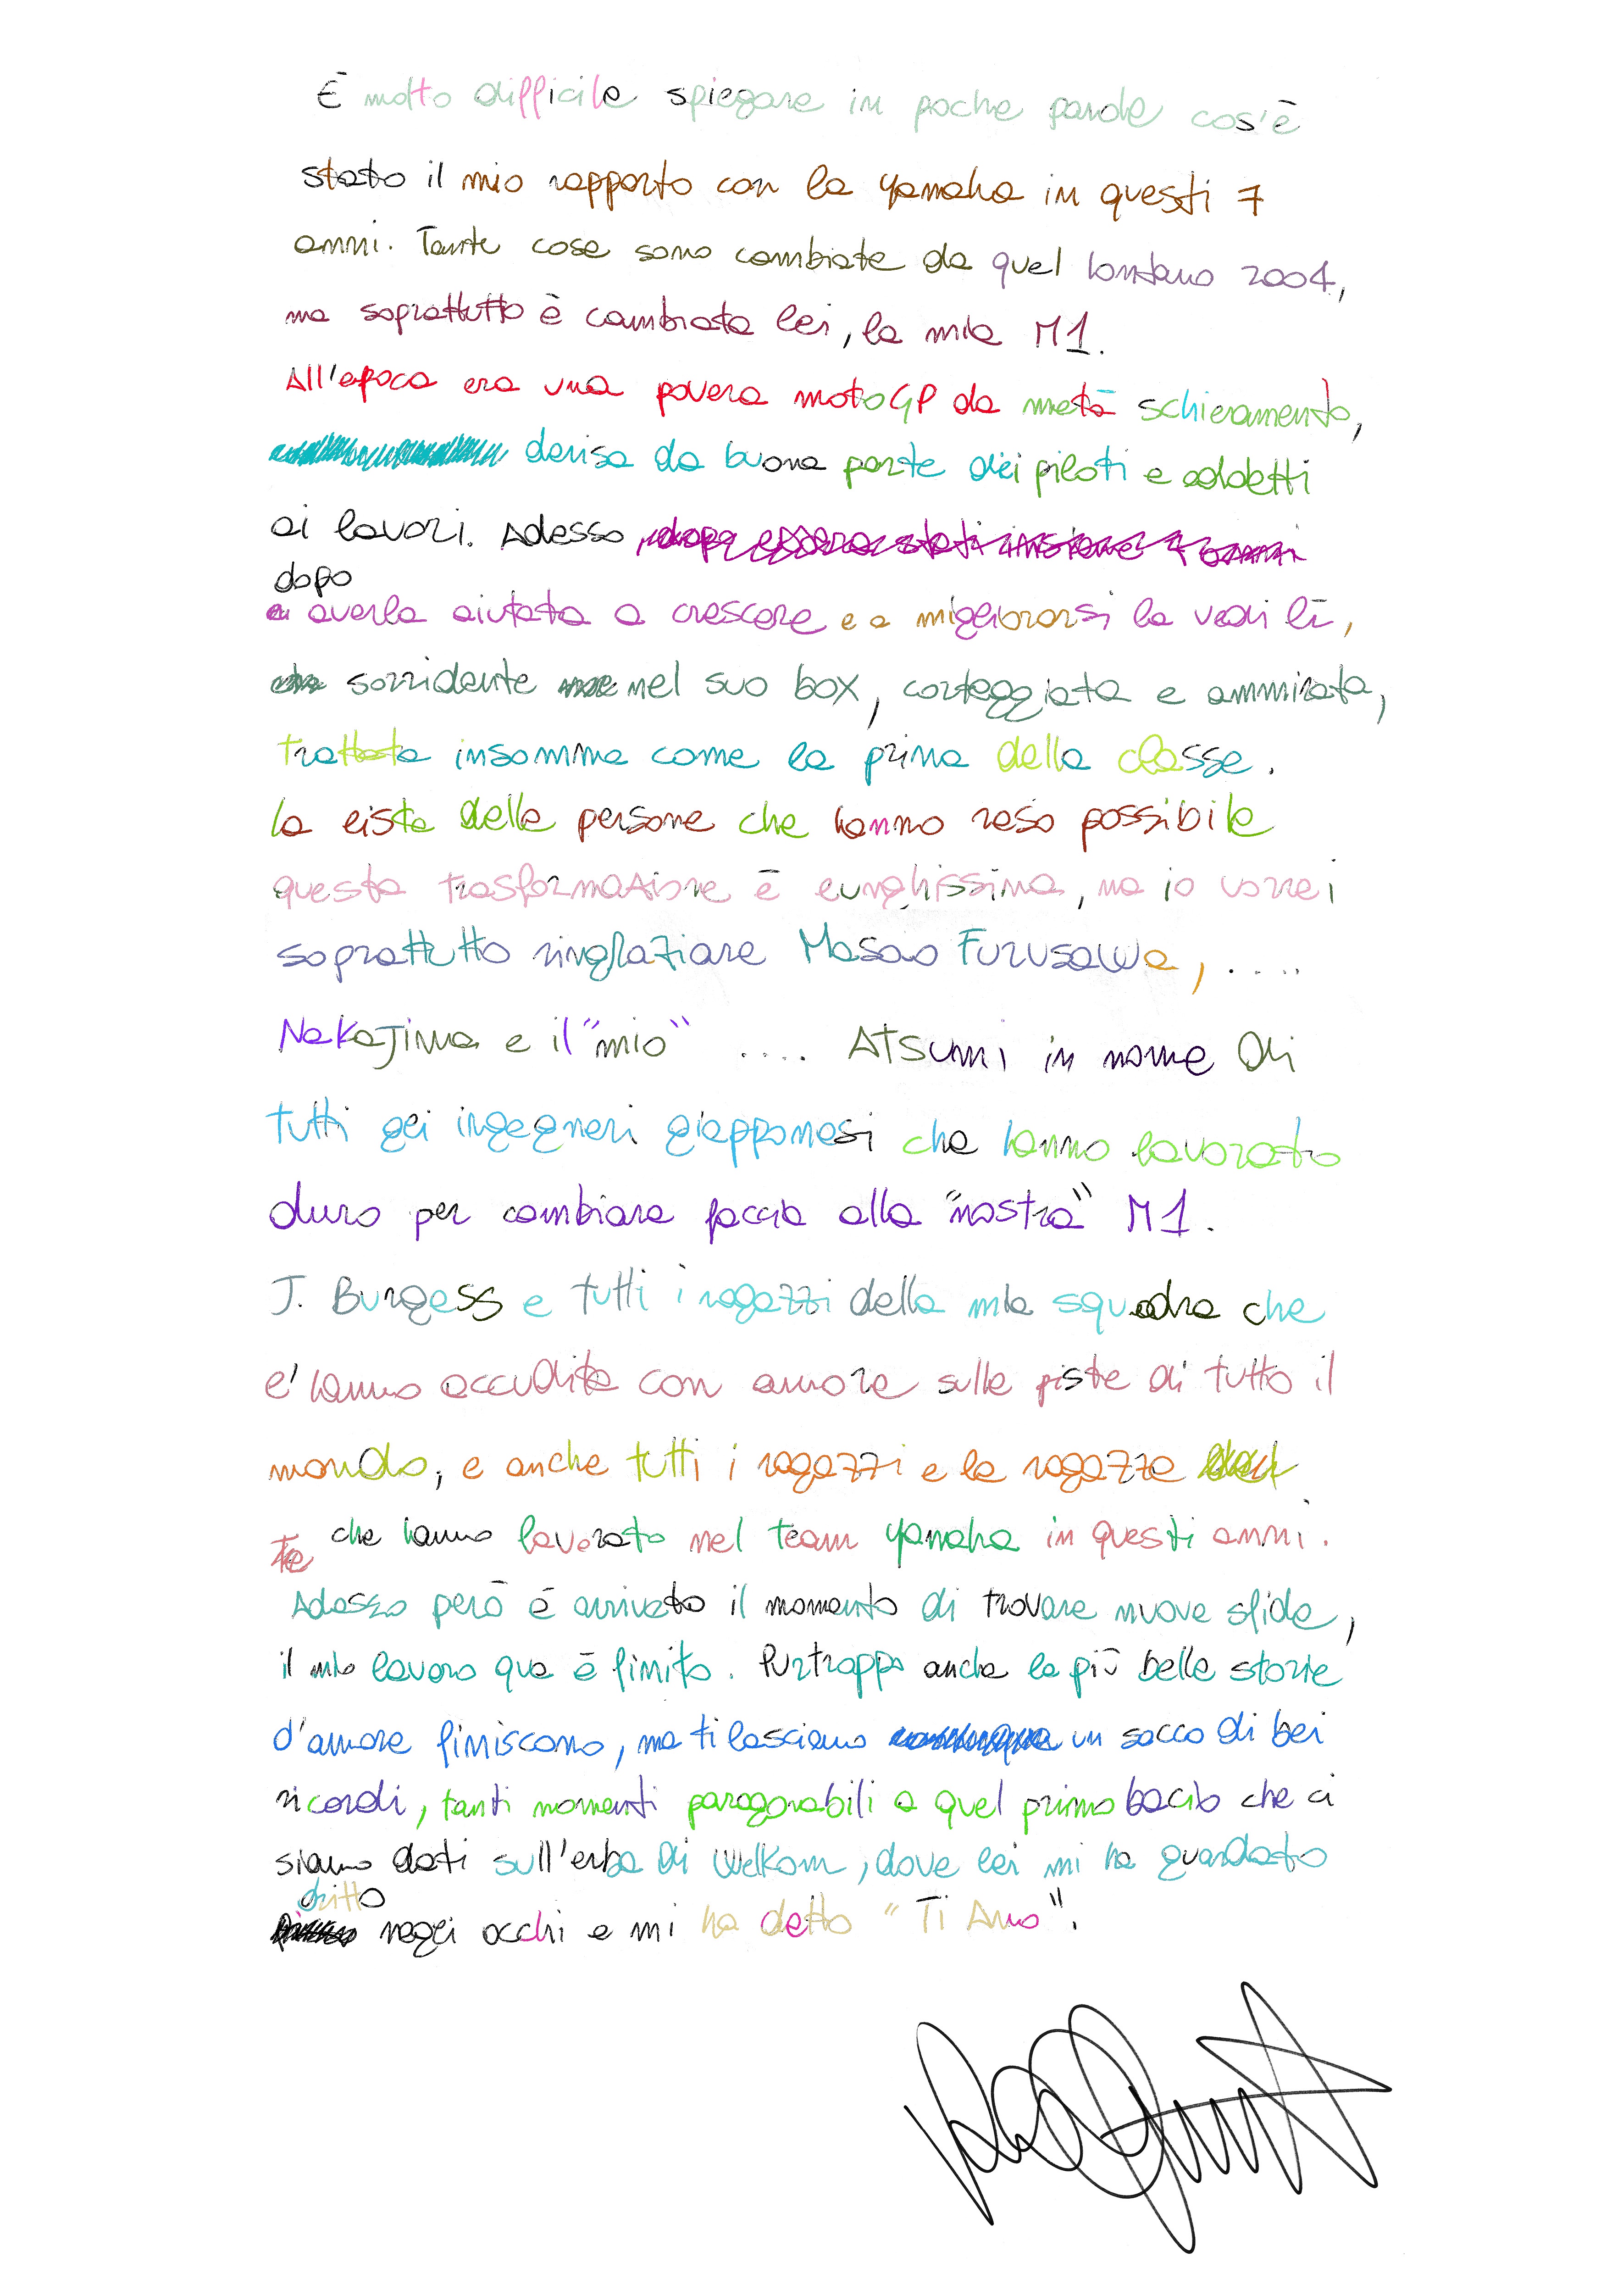 È molto difficile spiegare in poche parole cos'è
stato il mio rapporto con la yamaha in questi 7
anni. Tante cose sono cambiate da quel lontano 2004,
ma soprattutto è cambiata lei, la mia M1.
All'epoca era una povera motoGP da metà schieramento,
derisa da buona parte dei piloti e addetti
ai lavori. Adesso, dopo essere stati insieme 7 anni
dopo
averla aiutata a crescere e a migliorarsi la vedi lì,
sorridente nel suo box, corteggiata e ammirata,
trattata insomma come la prima della classe.
la lista delle persone che hanno reso possibile
questa trasformazione è lunghissima, ma io vorrei
soprattutto ringraziare Masao Furusawa, .....
Nakajima e il "mio" .... Atsumi in nome di
tutti gli ingegneri giapponesi che hanno lavorato
duro per cambiare faccia alla "nostra" M1.
J. Burgess e tutti i ragazzi della mia squadra che
l'hanno accudita con amore sulle piste di tutto il
mondo, e anche tutti i ragazzi e le ragazze
che hanno lavorato nel team yamaha in questi anni.
Adesso però è arrivato il momento di trovare nuove sfide,
il mio lavoro qua è finito. Purtroppo anche le più belle storie
d'amore finiscono, ma ti lasciano un sacco di bei
ricordi, tanti momenti paragonabili a quel primo bacio che ci
siamo dati sull'erba di Welkom, dove lei mi ha guardato
dritto
negli occhi e mi ha detto "Ti Amo".